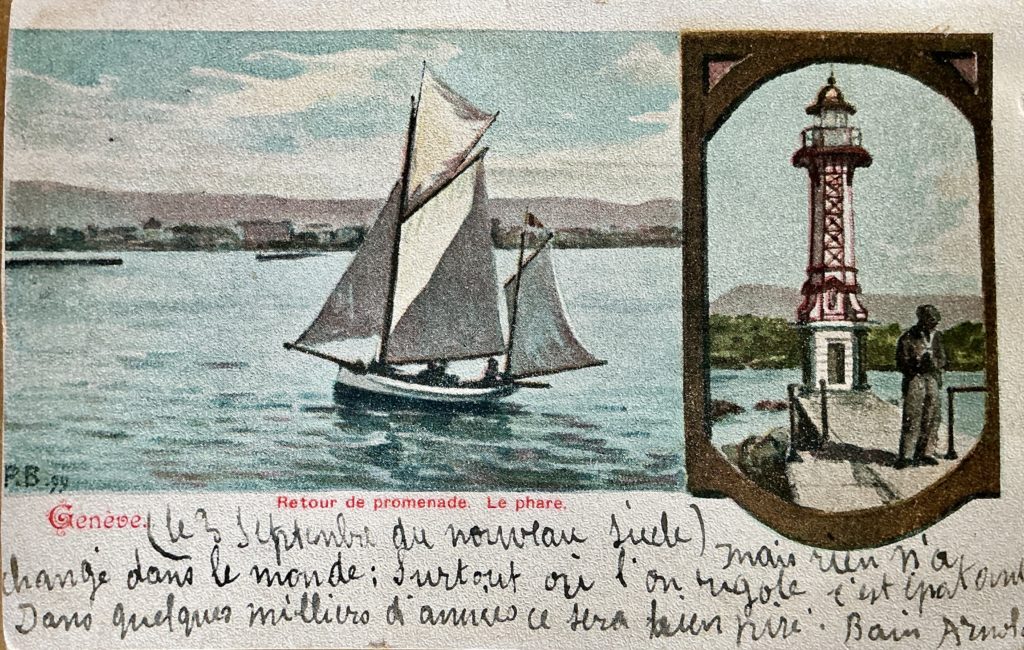 P.B. 99
Retour de promenade. Le phare.
Genève.
(le 3 Septembre du nouveau Siècle) mais rien n'a
changé dans le monde; surtout où l'on rigole c'est épatant
Dans quelques milliers d'années ce sera bien piré.